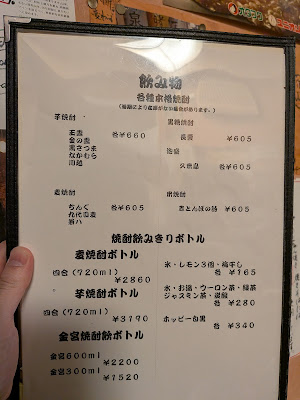 飲み物
各種本格焼酎
芋焼酎
金の露
黒さつま
なかむら
各¥660
黒糖焼酎
長雲
¥605
泡盛
久米島
¥605
麦焼酎
ちんぐ
各¥605
¥605
焼酎飲みきりボトル
麦焼酎ボトル
四合(720ml)
¥2860
芋焼酎ボトル
四合(720ml)
¥3190
金宮焼酎飲ボトル
金宮600ml
¥2200
金宮300ml
¥1520
氷・レモン3個・梅干し
各 ¥165
水・お湯・ウーロン茶・緑茶
ジャスミン茶・炭酸
各 ¥280
ホッピー白黒
各 ¥340